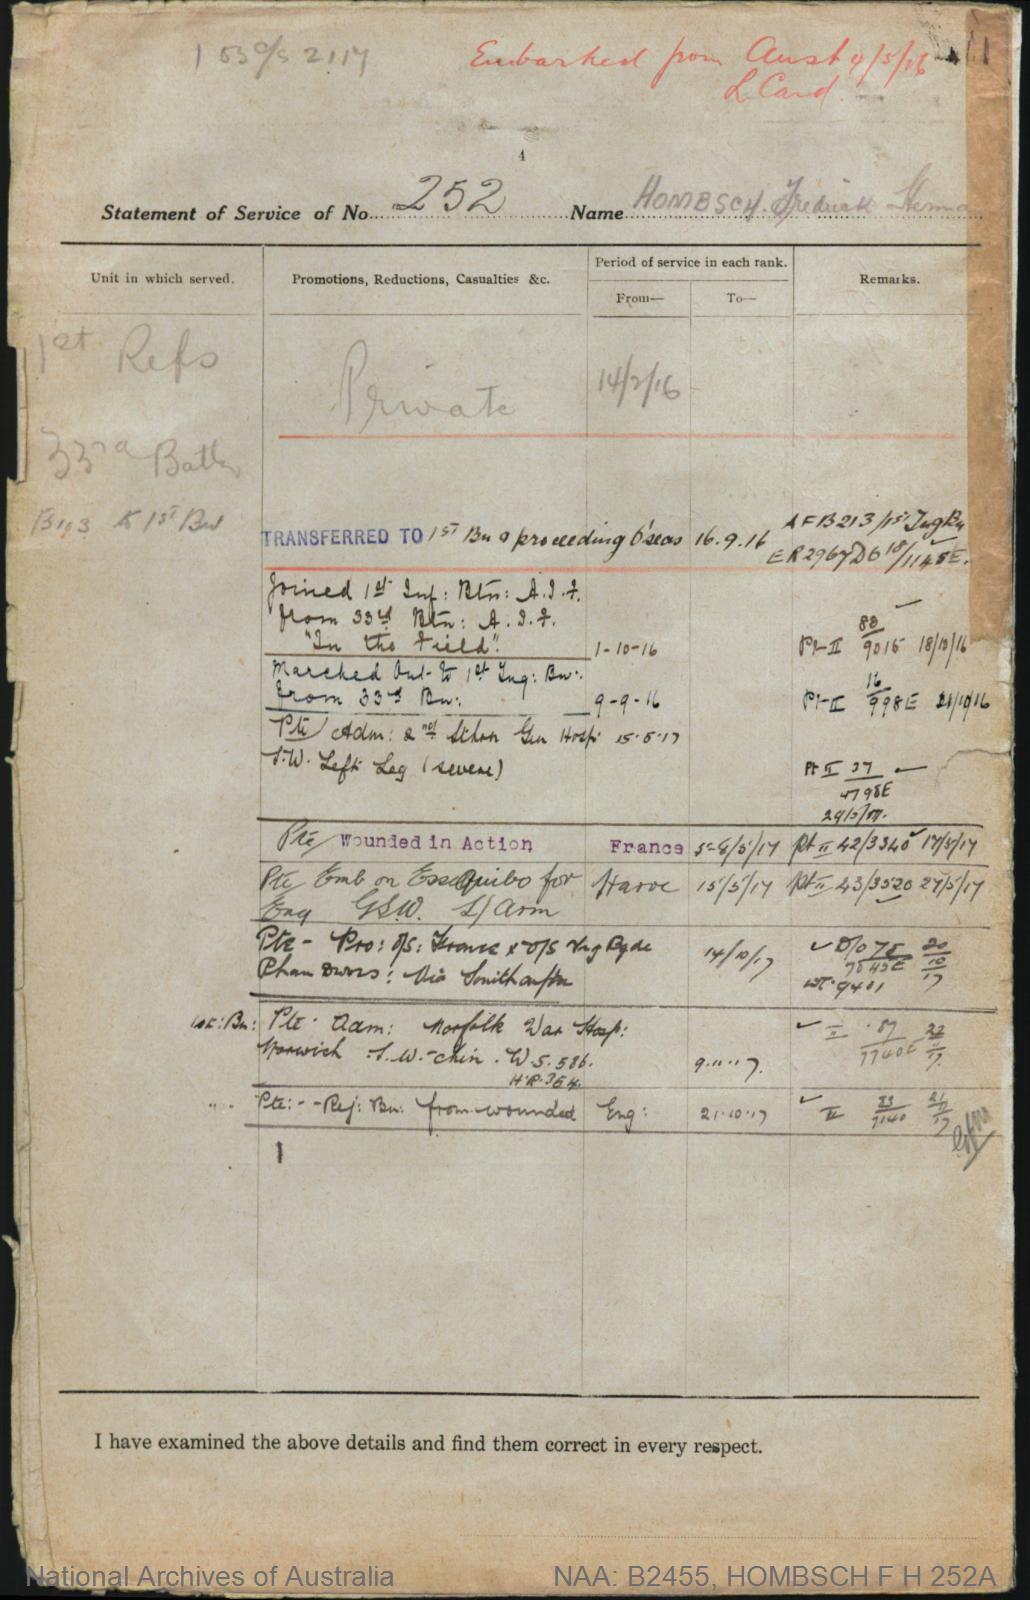 Embarked from Aust 4/5/16
L. Card.
4
Statement of Service of No. 252 Name HOMBSCH. Fredrick
Unit in which served. Promotions, Reductions, Casualties &c. Period of service in each rank. Remarks.
From— To—
1st Refs
Private 14/2/16
33rd Battn
to 1st Bn
TRANSFERRED TO 1ST Bn & proceeding O'seas 16.9.16 AFB213/1st Trg Bn
Joined 1st Inf: Btn: A.I.F.
from 33rd Btn: A.I.F. 88
"In the Field". 1-10-16 Pt-II 9015 18/10/16
Marched Out to 1st Trg: Bn:. 16
from 33rd Bn: 9-9-16 Pt-II 998E 21/10/16
Pte Adm: 2nd Gen Hospi 15.5.17
S.W. Left Leg (severe) Pt II 37
4798E
Pte Wounded in Action France 5-8/5/17 Pt II 42/3340 17/5/17
Pte Emb on Essequibo for Havre 15/5/17 Pt II 43/3520 27/5/17
Eng GSW. L/Arm
Pte - Pro: O/S: France x O/S Trg Bgde 14/10/17 D/O 75 20
7043E 10
Via Southampton 17
1st: Bn: Pte. Adm: Norfolk War Hosp: II 87 22
Norwich S.W. Chin. W.S. 586. 9.11.17. 7740E 11
H.R. 364. 17
" " Pte: - Rej: Bn: from wounded Eng: 21.10.17 II 83 21
7140 11
17
I have examined the above details and find them correct in every respect.
National Archives of Australia NAA: B2455, HOMBSCH F H 252A